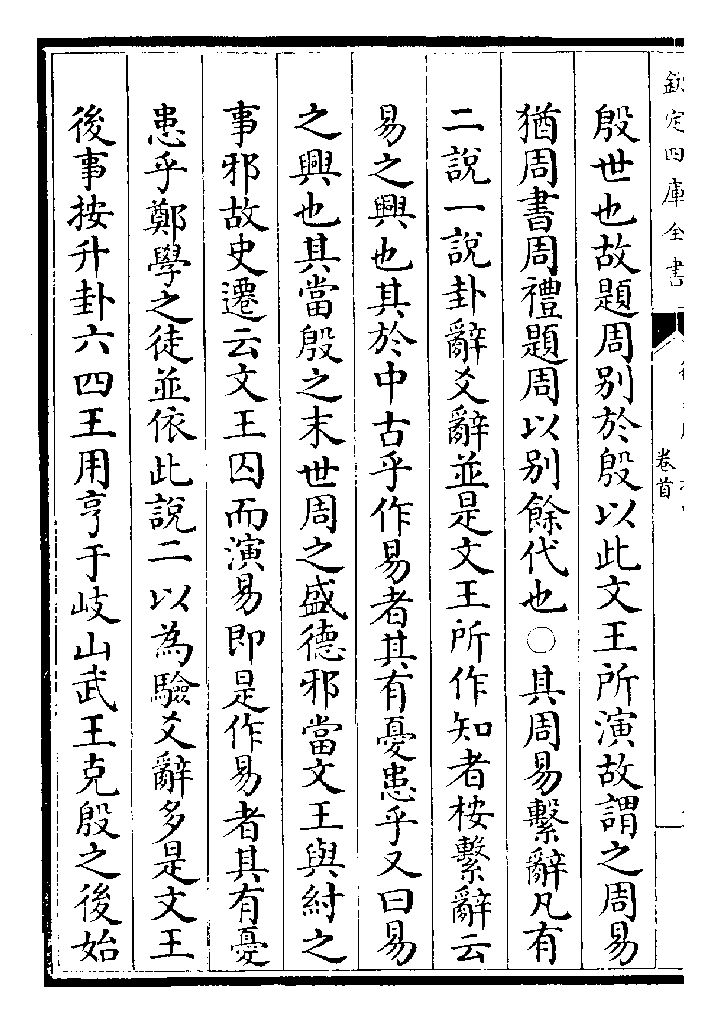 欽定四庫全書
卷首
殷世也故題周别於殷以此文王所演故謂之周易
猶周書周禮題周以别餘代也○其周易繫辭凡有
二說一說卦辭爻辭並是文王所作知者按繫辭云
易之興也其於中古乎作易者其有憂患乎又曰易
之興也其當殷之末世周之盛德邪當文王與紂之
事邪故史遷云文王囚而演易即是作易者其有憂
患乎鄭學之徒並依此說二以為驗爻辭多是文王
後事按升卦六四王用亨于岐山武王克殷之後始